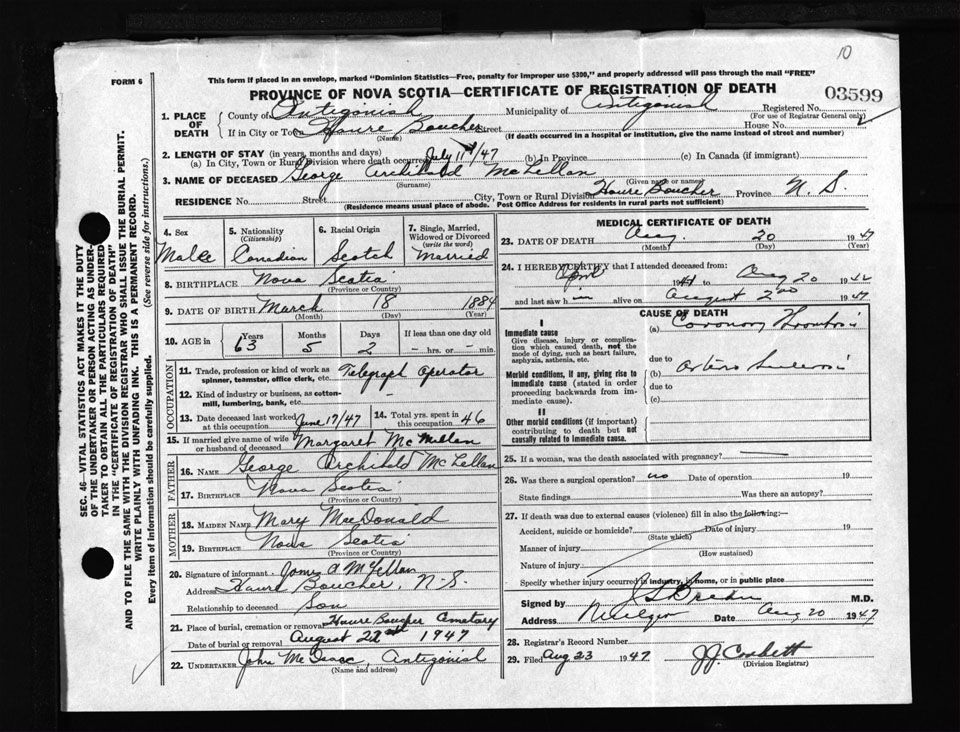 10
FORM 6
This form if placed in an envelope, marked "Dominion Statistics—Free, penalty for improper use $300," and properly addressed will pass through the mail "FREE"
PROVINCE OF NOVA SCOTIA—CERTIFICATE OF REGISTRATION OF DEATH
03599
1. PLACE OF DEATH
County of Antigonish Municipality of Antigonish Registered No.
(For use of Registrar General only)
If in City or Town Havre Boucher Street House No.
(Name) (If death occurred in a hospital or institution, give the name instead of street and number)
2. LENGTH OF STAY (in years, months and days)
(a) In City, Town or Rural Division where death occurred July 11/47 (b) In Province (c) In Canada (if immigrant)
3. NAME OF DECEASED George Archibald McLellan
(Surname) (Given name or names)
RESIDENCE No. Street City, Town or Rural Division Havre Boucher Province N. S.
(Residence means usual place of abode. Post Office Address for residents in rural parts not sufficient)
4. Sex Male
5. Nationality (Citizenship) Canadian
6. Racial Origin Scotch
7. Single, Married, Widowed or Divorced (write the word) Married
8. BIRTHPLACE Nova Scotia
(Province or Country)
9. DATE OF BIRTH March 18 1884
(Month) (Day) (Year)
10. AGE in Years 63 Months 5 Days 2 If less than one day old —hrs. or —min.
OCCUPATION
11. Trade, profession or kind of work as spinner, teamster, office clerk, etc. Telegraph Operator
12. Kind of industry or business, as cotton-mill, lumbering, bank, etc. —
13. Date deceased last worked at this occupation June 17/47
14. Total yrs. spent in this occupation 46
15. If married give name of wife or husband of deceased Margaret McMillan
FATHER
16. NAME George Archibald McLellan
17. BIRTHPLACE Nova Scotia
(Province or Country)
MOTHER
18. MAIDEN NAME Mary MacDonald
19. BIRTHPLACE Nova Scotia
(Province or Country)
20. Signature of informant James A McLellan
Address Havre Boucher, N-S.
Relationship to deceased Son
21. Place of burial, cremation or removal Havre Boucher Cemetery
Date of burial or removal August 22 1947
22. UNDERTAKER John McIsaac, Antigonish
(Name and address)
MEDICAL CERTIFICATE OF DEATH
23. DATE OF DEATH Aug. 20 1947
(Month) (Day) (Year)
24. I HEREBY CERTIFY that I attended deceased from:
19 Aug 20 19
and last saw him alive on August 2nd 1947
CAUSE OF DEATH
I
Immediate cause
Give disease, injury or complication which caused death, not the mode of dying, such as heart failure, asphyxia, asthenia, etc.
(a) Coronary Thrombosis
due to
Morbid conditions, if any, giving rise to immediate cause (stated in order proceeding backwards from immediate cause).
(b) Arterio Sclerosis
due to
(c)
II
Other morbid conditions (if important) contributing to death but not causally related to immediate cause.
25. If a woman, was the death associated with pregnancy? —
26. Was there a surgical operation? no Date of operation 19
State findings Was there an autopsy?
27. If death was due to external causes (violence) fill in also the following:—
Accident, suicide or homicide? Date of injury 19
(State which)
Manner of injury
(How sustained)
Nature of injury
Specify whether injury occurred in industry, in home, or in public place
Signed by M.D.
Address Date Aug 20 1947
28. Registrar's Record Number
29. Filed Aug 23 1947 J.J. Corbett
(Division Registrar)
SEC. 46—VITAL STATISTICS ACT MAKES IT THE DUTY
OF THE UNDERTAKER OR PERSON ACTING AS UNDER-
TAKER TO OBTAIN ALL THE PARTICULARS REQUIRED
IN THE "CERTIFICATE OF REGISTRATION OF DEATH"
AND TO FILE THE SAME WITH THE DIVISION REGISTRAR WHO SHALL ISSUE THE BURIAL PERMIT.
WRITE PLAINLY WITH UNFADING INK. THIS IS A PERMANENT RECORD.
Every item of information should be carefully supplied. (See reverse side for instructions.)